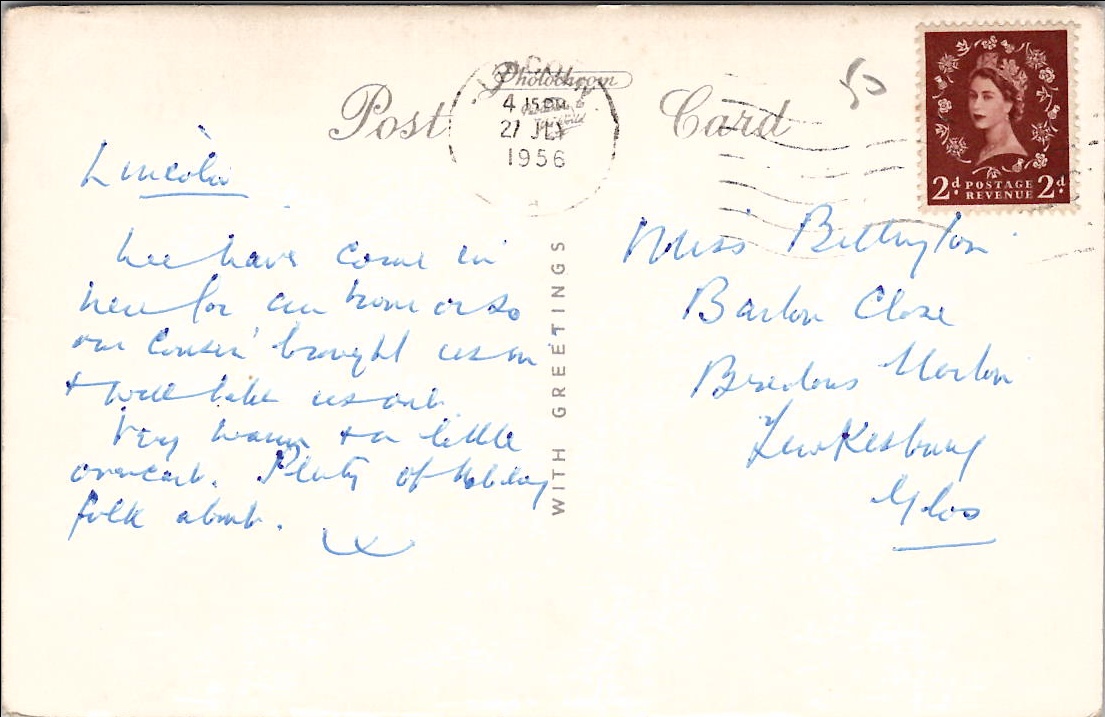 Post Card
LINCOLN
Photochrom
4 15 PM
27 JLY
1956
50
2d POSTAGE 2d
REVENUE
Lincoln
We have come in
here for an hour or so
our cousin brought us in
& will take us out.
Very warm & a little
overcast. Plenty of holiday
folk about.
WITH GREETINGS
Miss Bettington
Barton Close
Bredons Norton
Tewkesbury
Glos